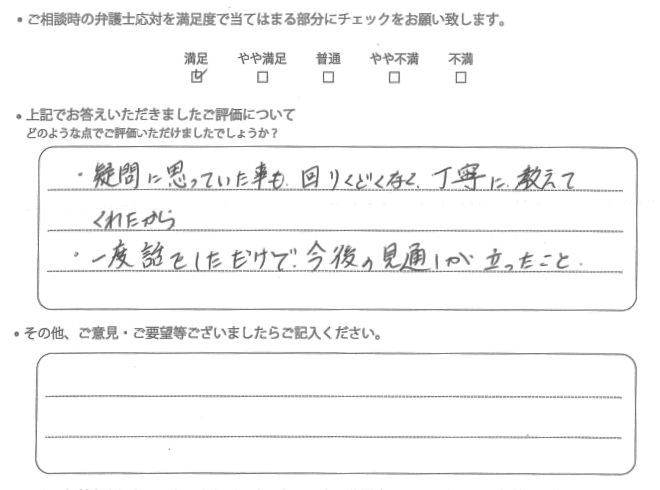 • ご相談時の弁護士応対を満足度で当てはまる部分にチェックをお願い致します。
満足 やや満足 普通 やや不満 不満
• 上記でお答えいただきましたご評価について
どのような点でご評価いただけましたでしょうか?
・疑問に思っていた事も、回りくどくなく、丁寧に、教えて
くれたから
・一度話をしただけで、今後の見通しが立ったこと.
• その他、ご意見・ご要望等ございましたらご記入ください。